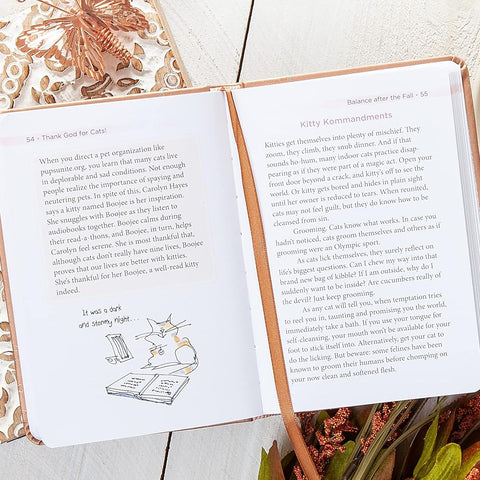 54 • Thank God for Cats!
When you direct a pet organization like
pupsunite.org, you learn that many cats live
in deplorable and sad conditions. Not enough
people realize the importance of spaying and
neutering pets. In spite of this, Carolyn Hayes
says a kitty named Boojee is her inspiration.
She snuggles with Boojee as they listen to
audiobooks together. Boojee calms during
their read-a-thons, and Boojee, in turn, helps
Carolyn feel serene. She is most thankful that,
although cats don't really have nine lives, Boojee
proves that our lives are better with kitties.
She's thankful for her Boojee, a well-read kitty
indeed.
It was a dark
and stormy night. . .
Balance after the Fall • 55
Kitty Kommandments
Kitties get themselves into plenty of mischief. They
zoom, they climb, they snub dinner. And if that
sounds ho-hum, many indoor cats practice disap-
pearing as if they were part of a magic act. Open your
front door beyond a crack, and kitty's off to see the
world. Or kitty gets bored and hides in plain sight
until her owner is reduced to tears. When reunited,
cats may not feel guilt, but they do know how to be
cleansed from sin.
Grooming. Cats know what works. In case you
hadn't noticed, cats groom themselves and others as if
grooming were an Olympic sport.
As cats lick themselves, they surely reflect on
life's biggest questions. Can I chew my way into that
brand new bag of kibble? If I am outside, why do I
suddenly want to be inside? Are cucumbers really of
the devil? Just keep grooming.
As any cat will tell you, when temptation tries
to reel you in, taunting and promising you the world,
immediately take a bath. If you use your tongue for
self-cleansing, your mouth won't be available for your
foot to stick itself into. Alternatively, get your cat to
do the licking. But beware: some felines have been
known to groom their humans before chomping on
your now clean and softened flesh.